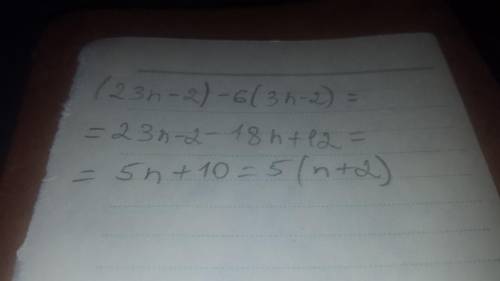 (23n-2)-6(3n-2)=
=23n-2-18n+12=
=5n+10=5(n+2)